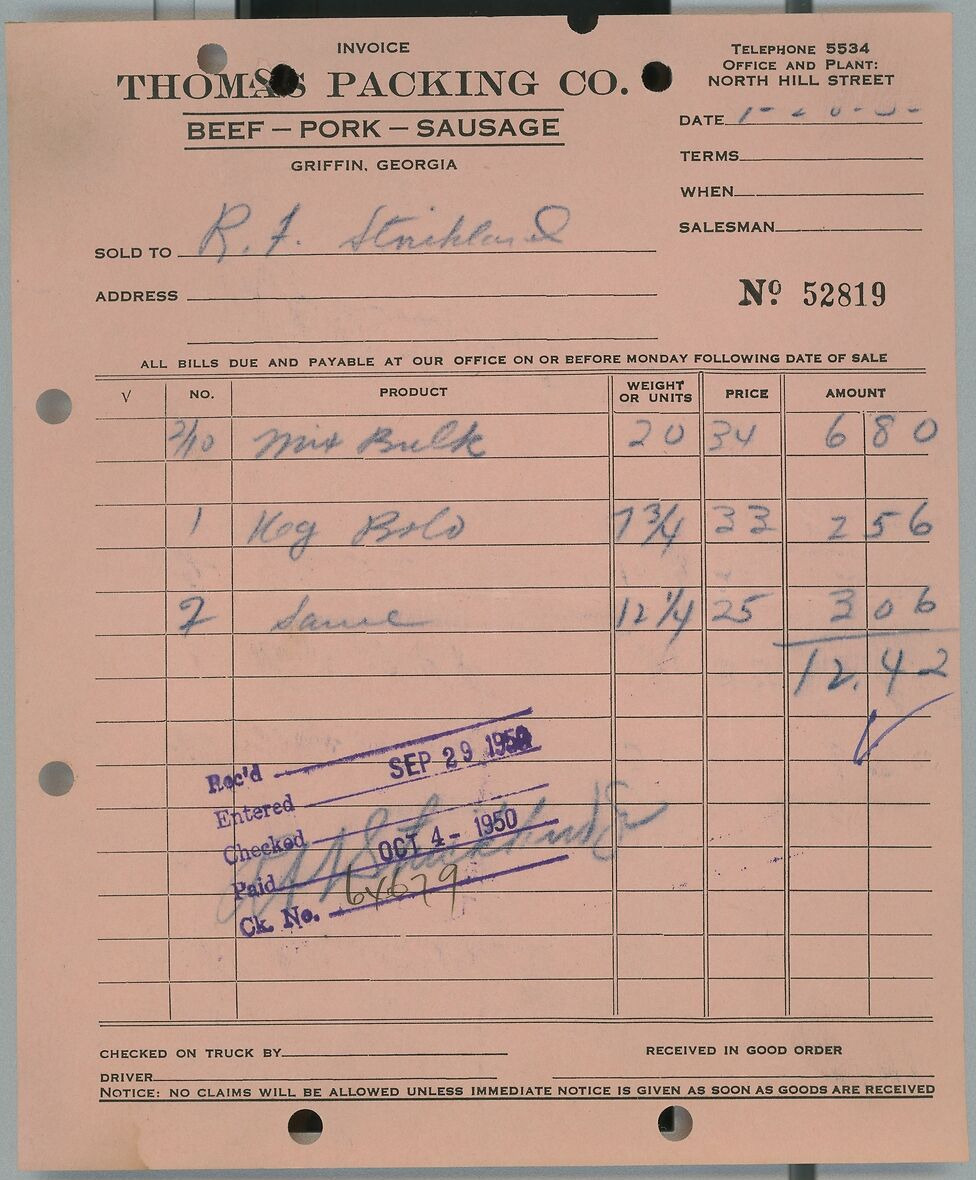 INVOICE
THOMAS PACKING CO.
BEEF – PORK – SAUSAGE
GRIFFIN, GEORGIA
TELEPHONE 5534
OFFICE AND PLANT:
NORTH HILL STREET
DATE
TERMS
WHEN
SALESMAN
SOLD TO R. F. Strickland
ADDRESS
No 52819
ALL BILLS DUE AND PAYABLE AT OUR OFFICE ON OR BEFORE MONDAY FOLLOWING DATE OF SALE
√ NO. PRODUCT WEIGHT OR UNITS PRICE AMOUNT
2/10 Mix Bulk 20 34 6 80
1 Keg Bolo 7 3/4 33 2 56
2 Same 12 1/4 25 3 06
12.42
Rec'd SEP 29 1950
Entered
Checked
Paid OCT 4 - 1950
Ck. No. 64679
CHECKED ON TRUCK BY
RECEIVED IN GOOD ORDER
DRIVER
NOTICE: NO CLAIMS WILL BE ALLOWED UNLESS IMMEDIATE NOTICE IS GIVEN AS SOON AS GOODS ARE RECEIVED